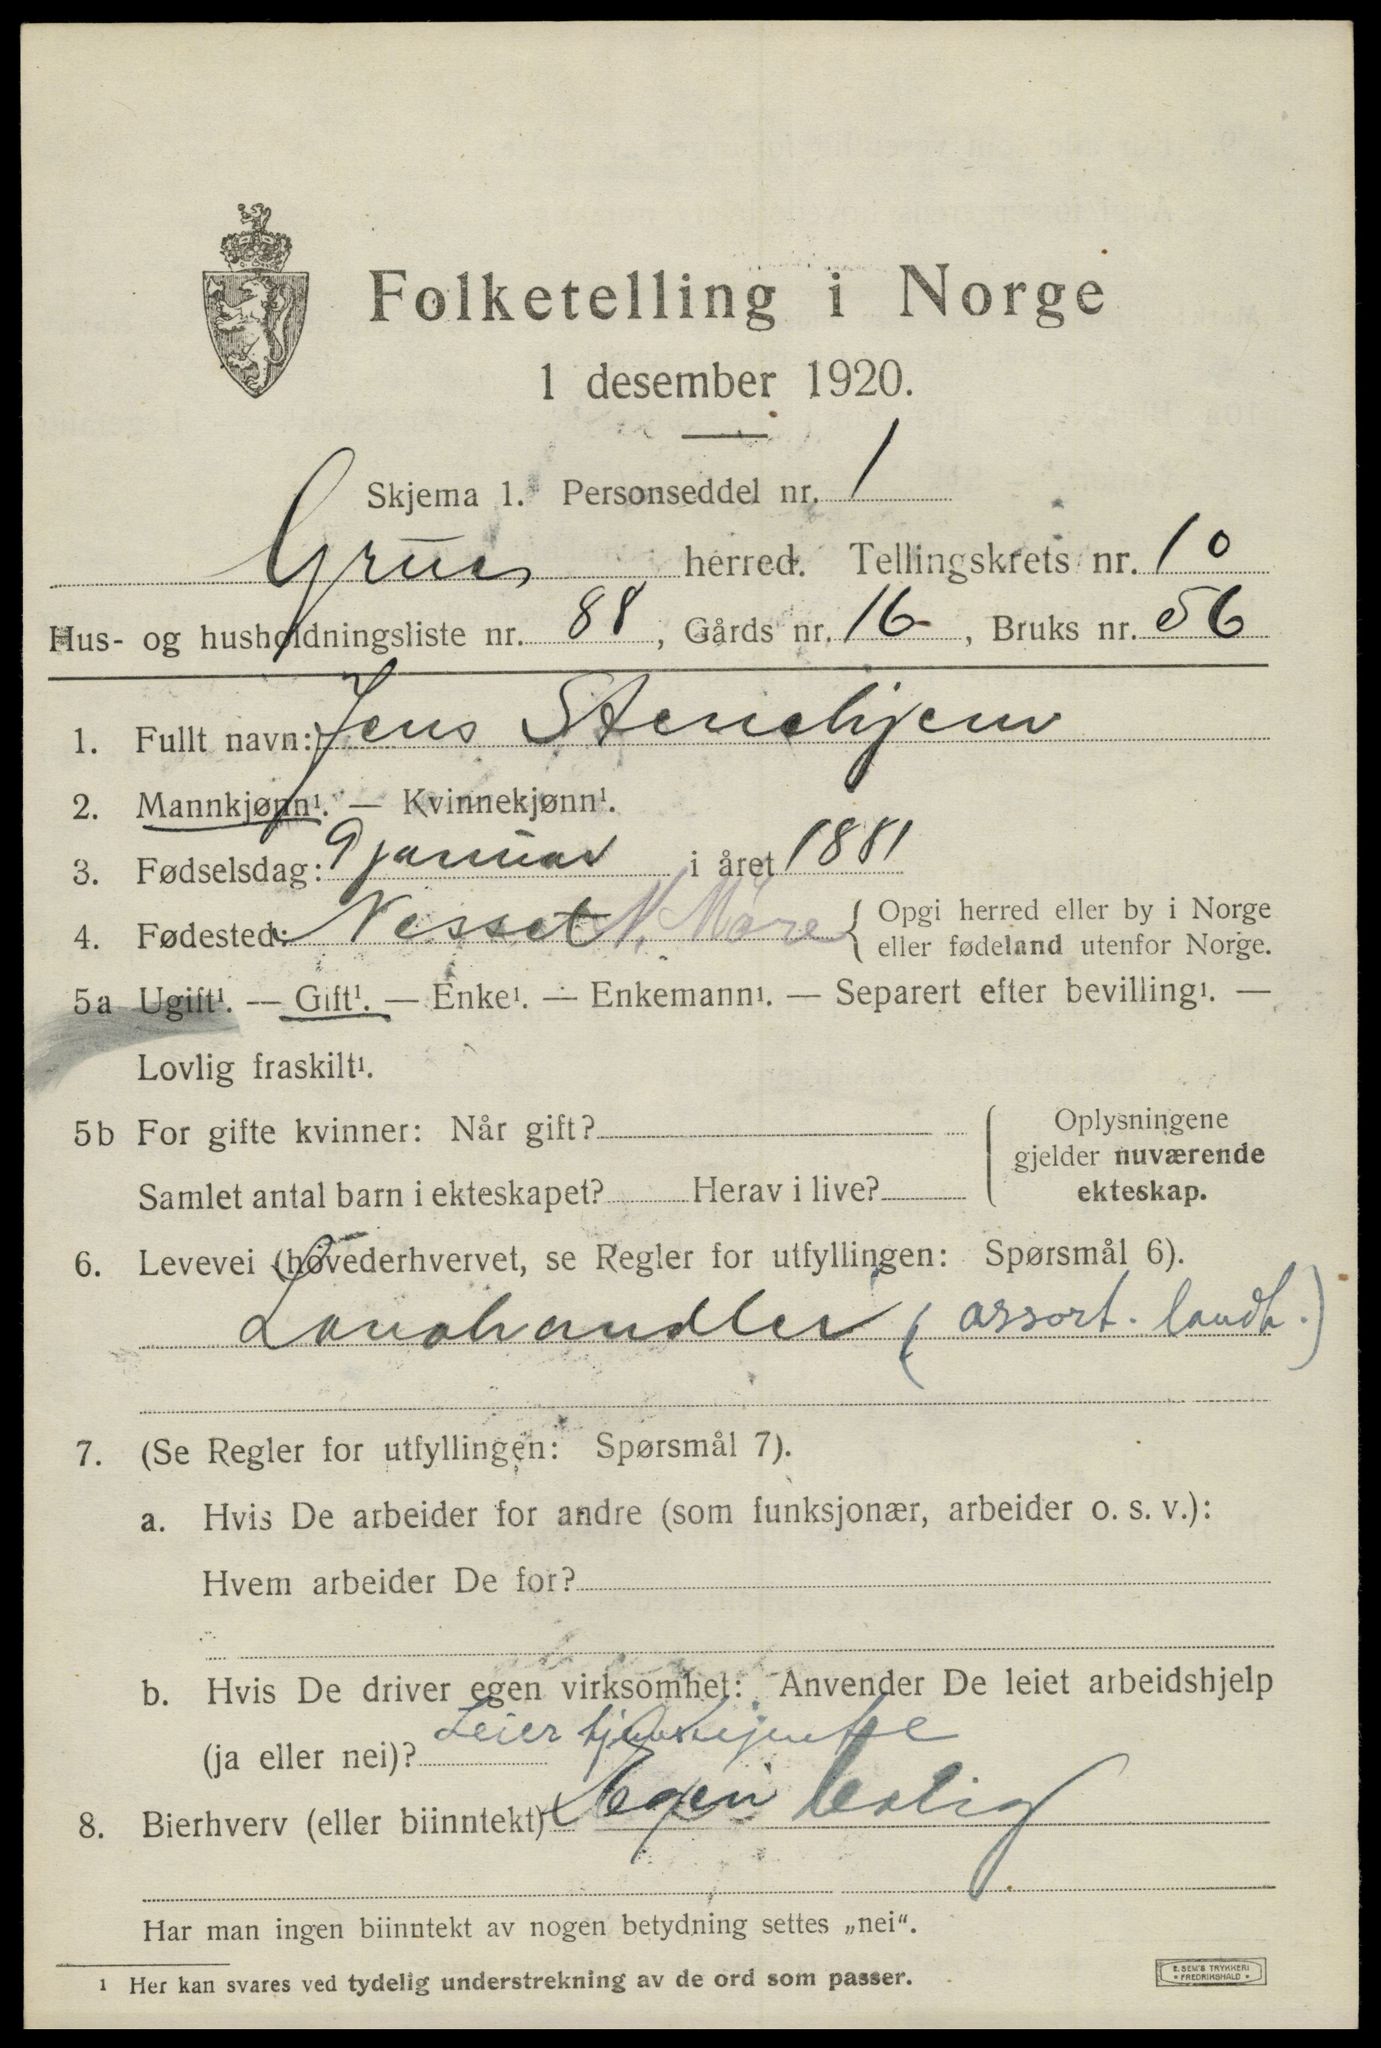 Folketelling i Norge
1 desember 1920.
Skjema 1. Personseddel nr. 1
Grue herred. Tellingskrets nr. 10
Hus- og husholdningsliste nr. 88, Gårds nr. 16, Bruks nr. 56
1. Fullt navn: Jens Stenehjem
2. Mannkjønn¹. — Kvinnekjønn¹.
3. Fødselsdag: 9 januar i året 1881
4. Fødested: Nesset N. Møre { Opgi herred eller by i Norge
eller fødeland utenfor Norge.
5a Ugift¹. — Gift¹. — Enke¹. — Enkemann¹. — Separert efter bevilling¹. —
Lovlig fraskilt¹.
5b For gifte kvinner: Når gift?
Samlet antal barn i ekteskapet? Herav i live?
Oplysningene
gjelder nuværende
ekteskap.
6. Levevei (hovederhvervet, se Regler for utfyllingen: Spørsmål 6).
Landhandler (assort. landh.)
7. (Se Regler for utfyllingen: Spørsmål 7).
a. Hvis De arbeider for andre (som funksjonær, arbeider o. s. v.):
Hvem arbeider De for?
b. Hvis De driver egen virksomhet: Anvender De leiet arbeidshjelp
(ja eller nei)? Leier tjenstejente
8. Bierhverv (eller biinntekt) Egen bolig
Har man ingen biinntekt av nogen betydning settes „nei“.
¹ Her kan svares ved tydelig understrekning av de ord som passer.
E. SEM'S TRYKKERI
FREDRIKSHALD